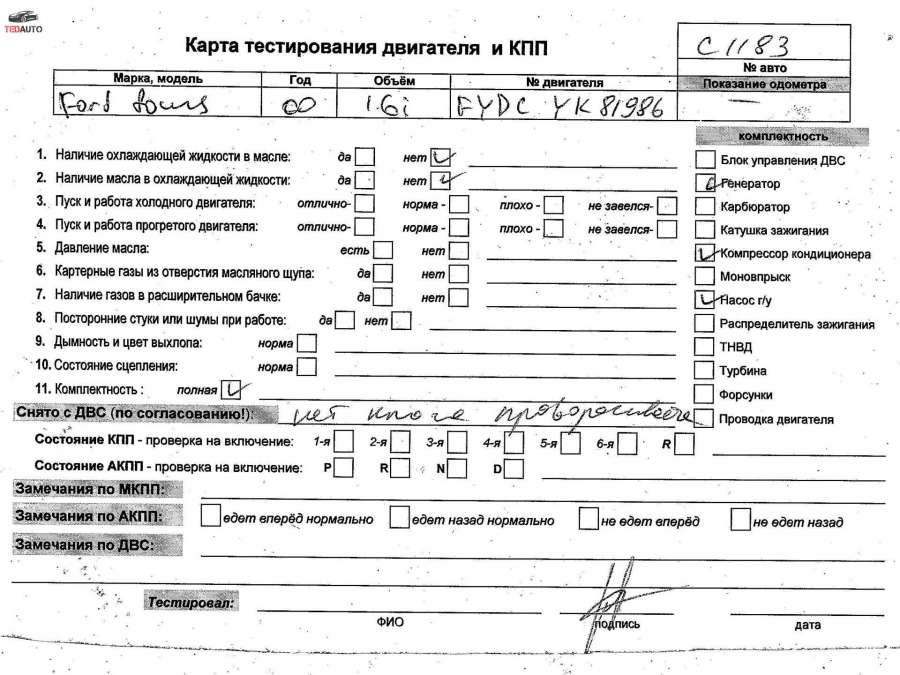 TEDAUTO
Карта тестирования двигателя и КПП
C1183
№ авто
Марка, модель Год Объём № двигателя Показание одометра
Ford 00 1.6i FYDC YK81986 —
комплектность
1. Наличие охлаждающей жидкости в масле: да нет
2. Наличие масла в охлаждающей жидкости: да нет
3. Пуск и работа холодного двигателя: отлично- норма - плохо - не завелся-
4. Пуск и работа прогретого двигателя: отлично- норма - плохо - не завелся-
5. Давление масла: есть нет
6. Картерные газы из отверстия масляного щупа: да нет
7. Наличие газов в расширительном бачке: да нет
8. Посторонние стуки или шумы при работе: да нет
9. Дымность и цвет выхлопа: норма
10. Состояние сцепления: норма
11. Комплектность : полная
Блок управления ДВС
Генератор
Карбюратор
Катушка зажигания
Компрессор кондиционера
Моновпрыск
Насос г/у
Распределитель зажигания
ТНВД
Турбина
Форсунки
Проводка двигателя
Снято с ДВС (по согласованию!): нет
Состояние КПП - проверка на включение: 1-я 2-я 3-я 4-я 5-я 6-я R
Состояние АКПП - проверка на включение: P R N D
Замечания по МКПП:
Замечания по АКПП: едет вперёд нормально едет назад нормально не едет вперёд не едет назад
Замечания по ДВС:
Тестировал:
ФИО подпись дата